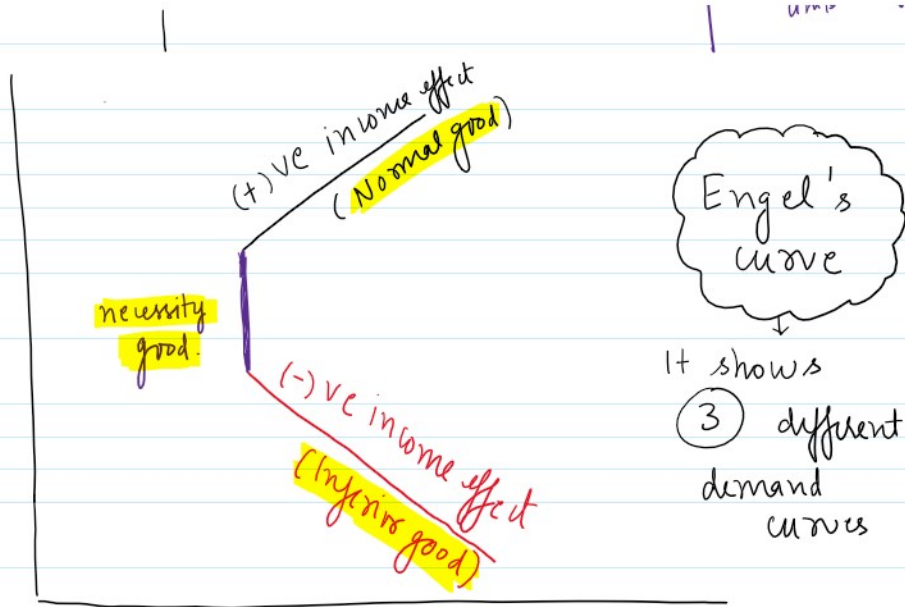 (+)ve income effect
(Normal good)
necessity
good.
(-)ve income effect
(Inferior good)
Engel's
curve
It shows
3 different
demand
curves